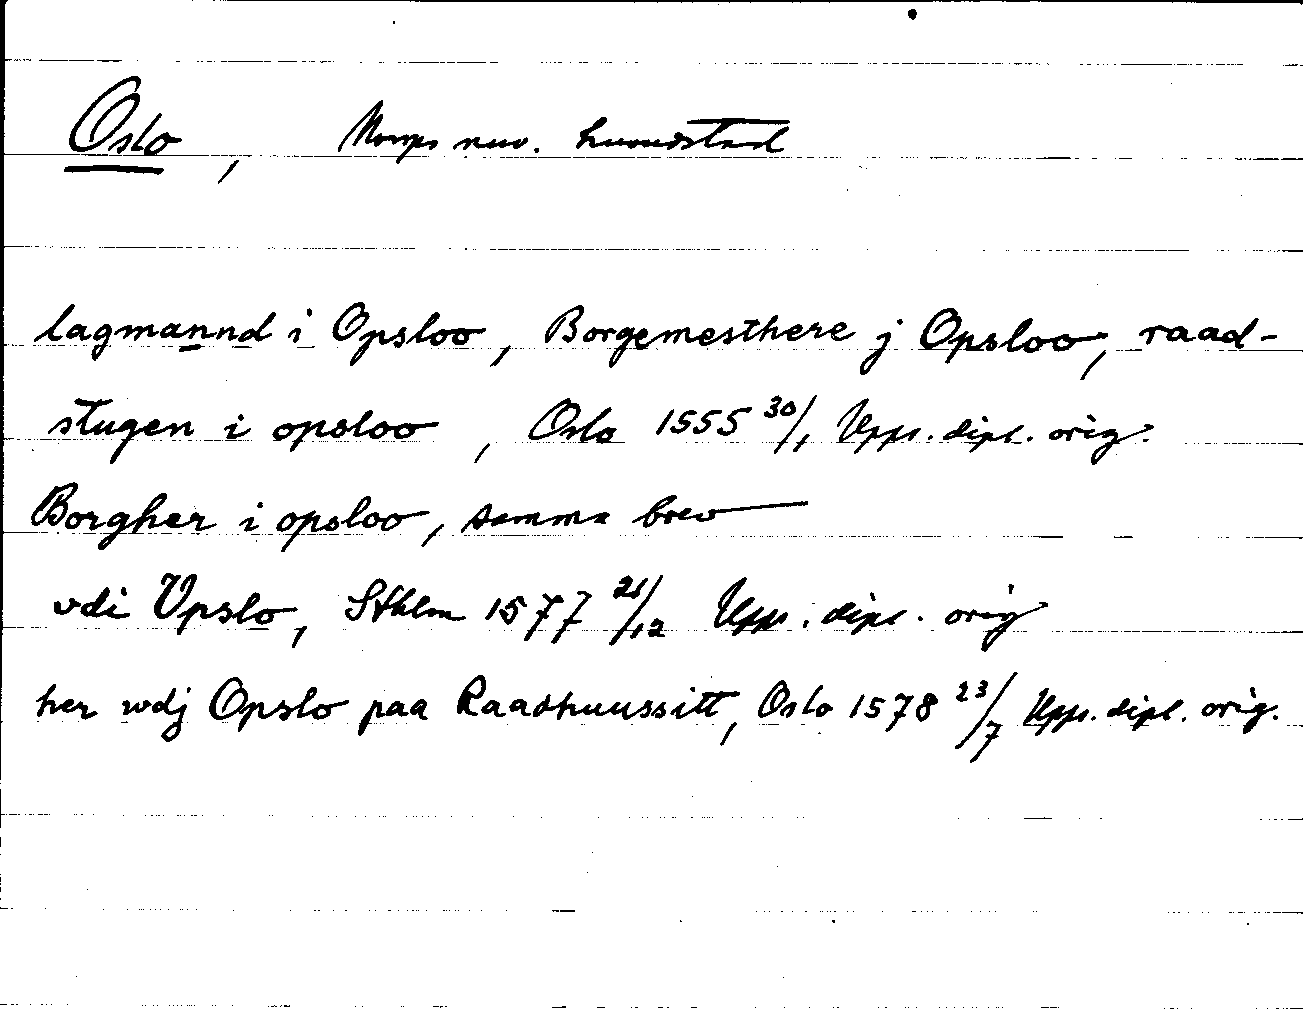 Oslo, Norges nuv. huvudstad
lagmannd i Opsloo, Borgemesthere j Opsloo, raad-
stugen i opsloo, Oslo 1555 30/1 Upps. dipl. orig.
Borgher i opsloo, samma brev
vdi Vpslo, Sthlm 1577 21/12 Upps. dipl. orig
her wdj Opslo paa Raadhuussitt, Oslo 1578 23/7 Upps. dipl. orig.